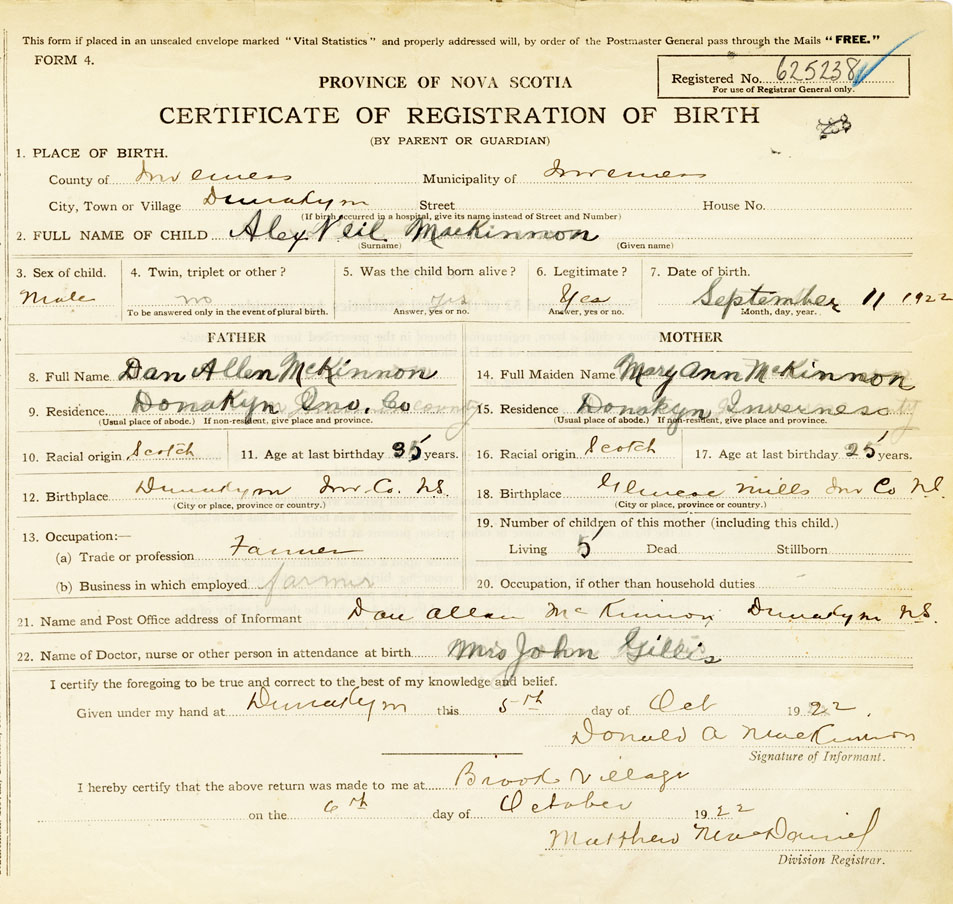 This form if placed in an unsealed envelope marked "Vital Statistics" and properly addressed will, by order of the Postmaster General pass through the Mails "FREE."
FORM 4.
Registered No. 625238
For use of Registrar General only.
PROVINCE OF NOVA SCOTIA
CERTIFICATE OF REGISTRATION OF BIRTH
(BY PARENT OR GUARDIAN)
1. PLACE OF BIRTH.
County of Inverness Municipality of Inverness
City, Town or Village Dunakyn Street House No.
(If birth occurred in a hospital, give its name instead of Street and Number)
2. FULL NAME OF CHILD Alex Neil MacKinnon
(Surname) (Given name)
3. Sex of child. 4. Twin, triplet or other? 5. Was the child born alive? 6. Legitimate? 7. Date of birth.
Male no yes Yes September 11 1922
To be answered only in the event of plural birth. Answer, yes or no. Answer, yes or no. Month, day, year.
FATHER MOTHER
8. Full Name Dan Allen McKinnon 14. Full Maiden Name Mary Ann McKinnon
9. Residence Donakyn Inv. Co 15. Residence Donakyn Inverness
(Usual place of abode.) If non-resident, give place and province. (Usual place of abode.) If non-resident, give place and province.
10. Racial origin Scotch 11. Age at last birthday 35 years. 16. Racial origin Scotch 17. Age at last birthday 25 years.
12. Birthplace Dunakyn Inv. Co. N.S. 18. Birthplace Glencoe Mills Inv Co N.S.
(City or place, province or country.) (City or place, province or country.)
19. Number of children of this mother (including this child.)
13. Occupation:—
(a) Trade or profession Farmer Living 5 Dead Stillborn
(b) Business in which employed farmer 20. Occupation, if other than household duties
21. Name and Post Office address of Informant Dan Allan McKinnon Dunakyn N.S.
22. Name of Doctor, nurse or other person in attendance at birth Mrs John Gillis
I certify the foregoing to be true and correct to the best of my knowledge and belief.
Given under my hand at Dunakyn this 5th day of Oct 1922.
Donald A MacKinnon
Signature of Informant.
I hereby certify that the above return was made to me at Brook Village
on the 6th day of October 1922
Matthew MacDaniel
Division Registrar.